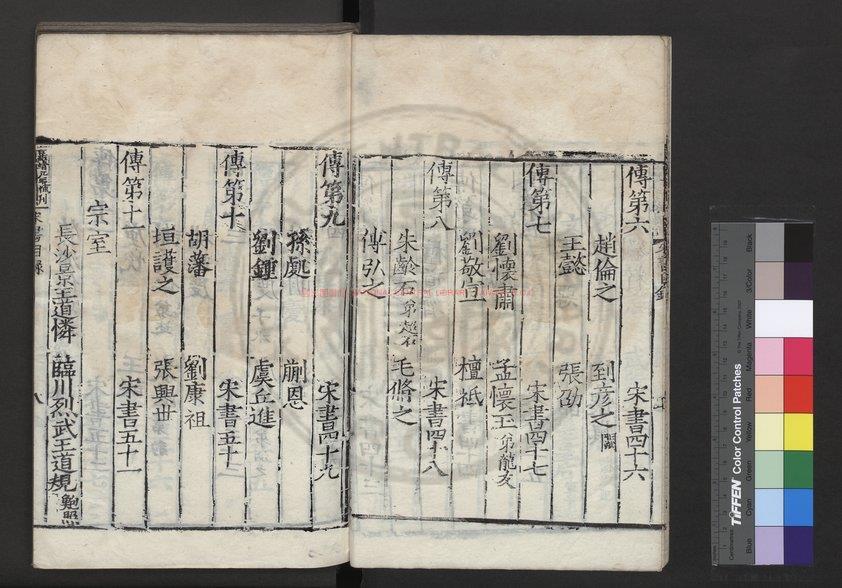 傳第六 宋書四十六
趙倫之 到彥之闕
王懿 張劭
傳第七 宋書四十七
劉懷肅 孟懷玉弟龍友
劉敬宣 檀祗
傳第八 宋書四十八
朱齡石弟超石 毛脩之
傅弘之
傳第九 宋書四十九
孫處 蒯恩
劉鍾 虞丘進
傳第十 宋書五十
胡藩 劉康祖
垣護之 張興世
傳第十一 宋書五十一
宗室
長沙景王道憐 臨川烈武王道規鮑照
宋書目錄 八
TIFFEN Color Control Patches
Blue Cyan Green Yellow Red Magenta White 3/Color Black